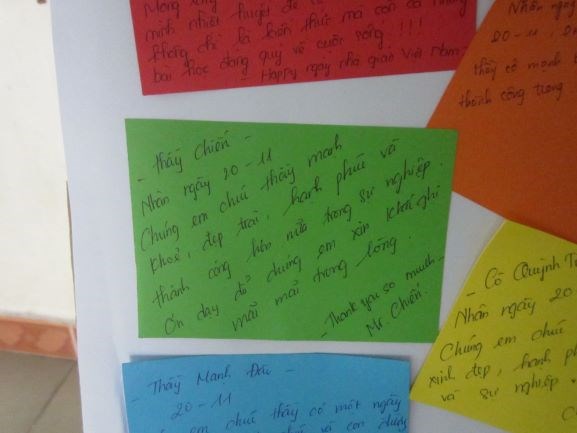 minh nhiệt huyết để
không chỉ là kiến thức mà còn cả những
bài học đáng quý về cuộc sống !!!
Happy ngày nhà giáo Việt Nam
Nhân ngày
20-11
thầy cô mạnh
thành công trong
- Thầy Chiến -
Nhân ngày 20-11
Chúng em chúc thầy mạnh
khoẻ, đẹp trai, hạnh phúc và
thành công hơn nữa trong sự nghiệp.
Ơn dạy dỗ chúng em xin khắc ghi
mãi mãi trong lòng.
- Thank you so much -
Mr Chiến.
- Cô Quỳnh
Nhân ngày 20
Chúng em chúc
xinh đẹp, hạnh
và sự nghiệp
- Thầy Mạnh
20-11
em chúc thầy có một ngày